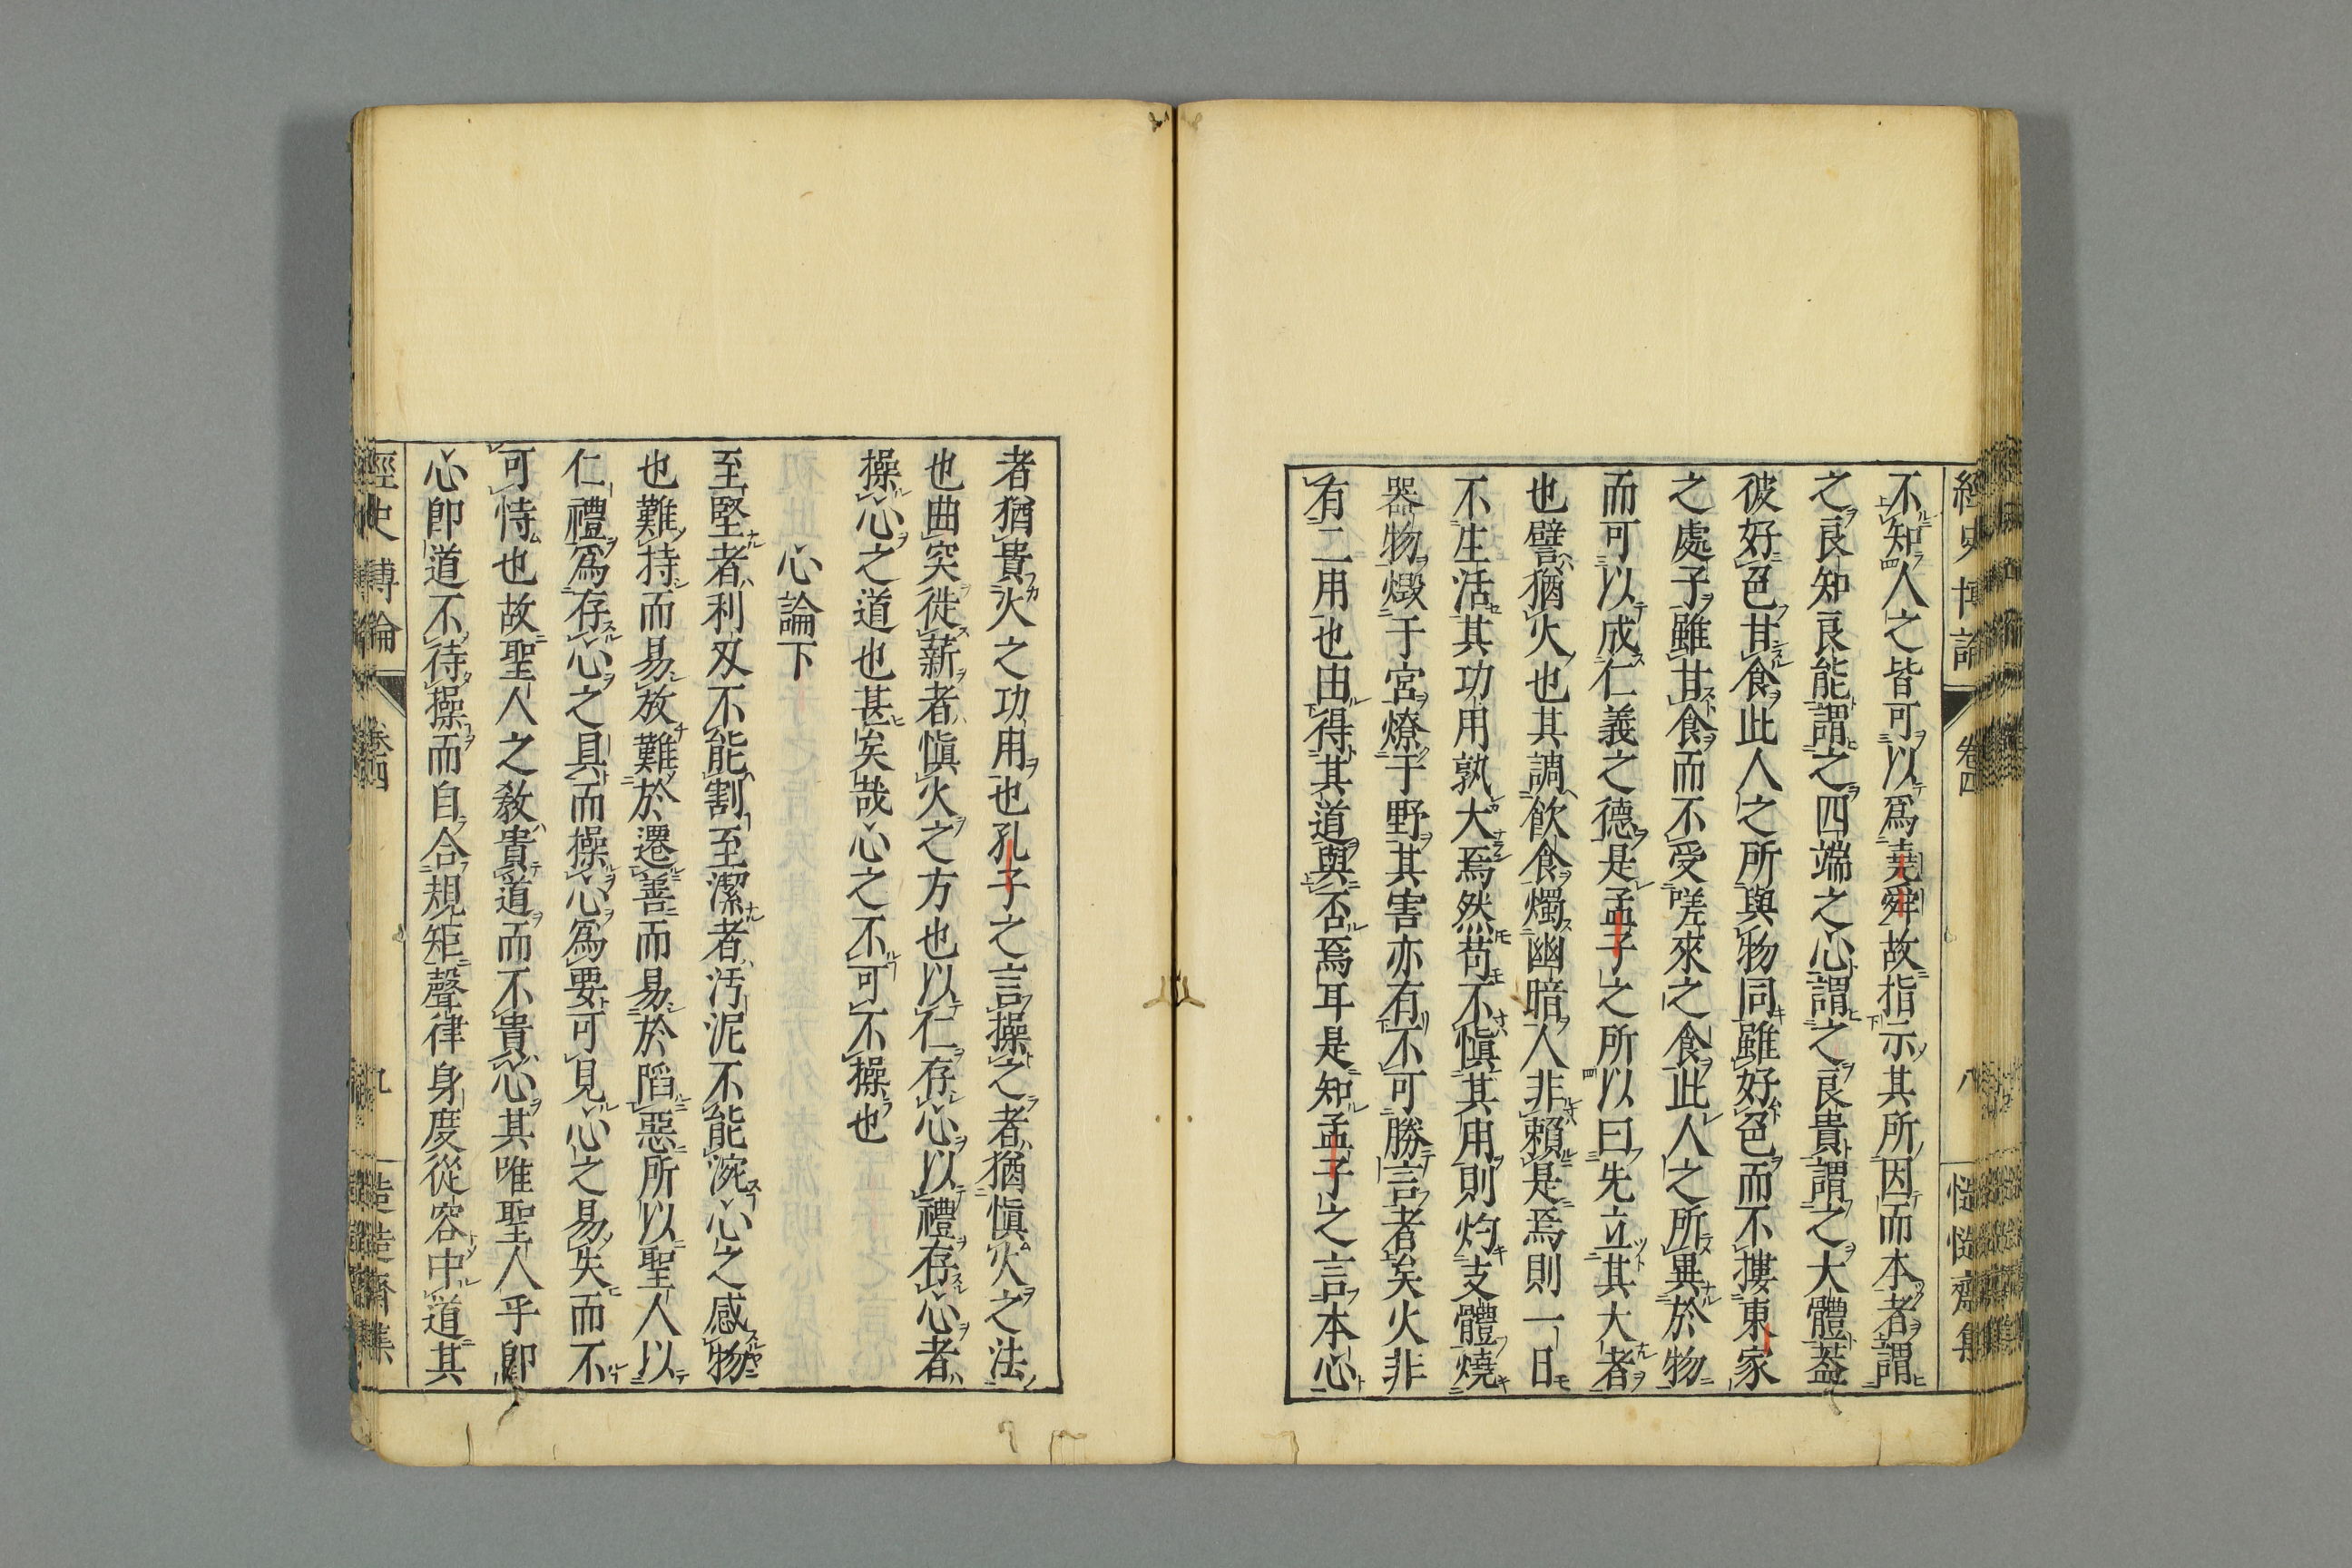 經史博論 卷四 八 慥慥齋集
不知人之皆可以爲堯舜故指示其所因而本者謂
之良知良能謂之四端之心謂之良貴謂之大體蓋
彼好色甘食此人之所與物同雖好色而不摟東家
之處子雖甘食而不受嗟來之食此人之所異於物
而可以成仁義之德是孟子之所以曰先立其大者
也譬猶火也其調飲食燭幽暗人非賴是焉則一日
不生活其功用孰大焉然苟不愼其用則灼支體燒
器物燬于宮燎于野其害亦有不可勝言者矣火非
有二用也由得其道與否焉耳是知孟子之言本心
者猶貴火之功用也孔子之言操之者猶愼火之法
也曲突徙薪者愼火之方也以仁存心以禮存心者
操心之道也甚矣哉心之不可不操也
心論下
至堅者利刄不能割至潔者汚泥不能涴心之感物
也難持而易放難於遷善而易於陷惡所以聖人以
仁禮爲存心之具而操心爲要可見心之易失而不
可恃也故聖人之敎貴道而不貴心其唯聖人乎卽
心卽道不待操而自合規矩聲律身度從容中道其
經史博論 卷四 九 慥慥齋集